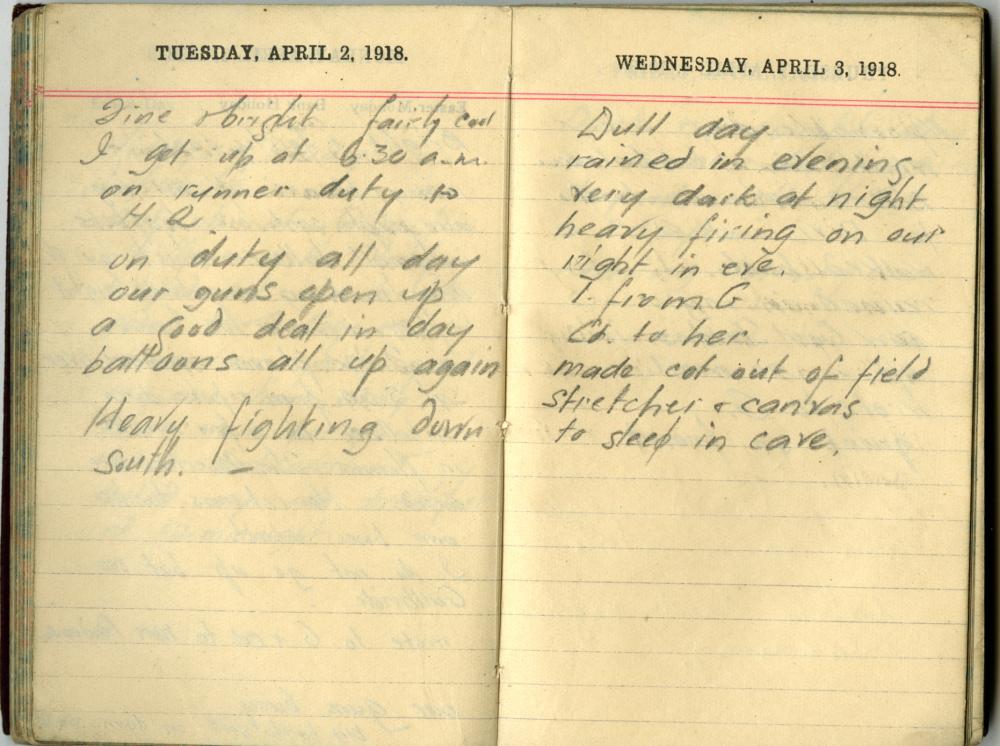 TUESDAY, APRIL 2, 1918.
Fine & bright fairly cool
I get up at 6.30 a.m.
on runner duty to
H.Q.
on duty all day
our guns open up
a good deal in day
balloons all up again
Heavy fighting down
South. —
WEDNESDAY, APRIL 3, 1918.
Dull day
rained in evening
very dark at night
heavy firing on our
right in eve.
from G
Co. to her
made cot out of field
stretcher & canvas
to sleep in cave.